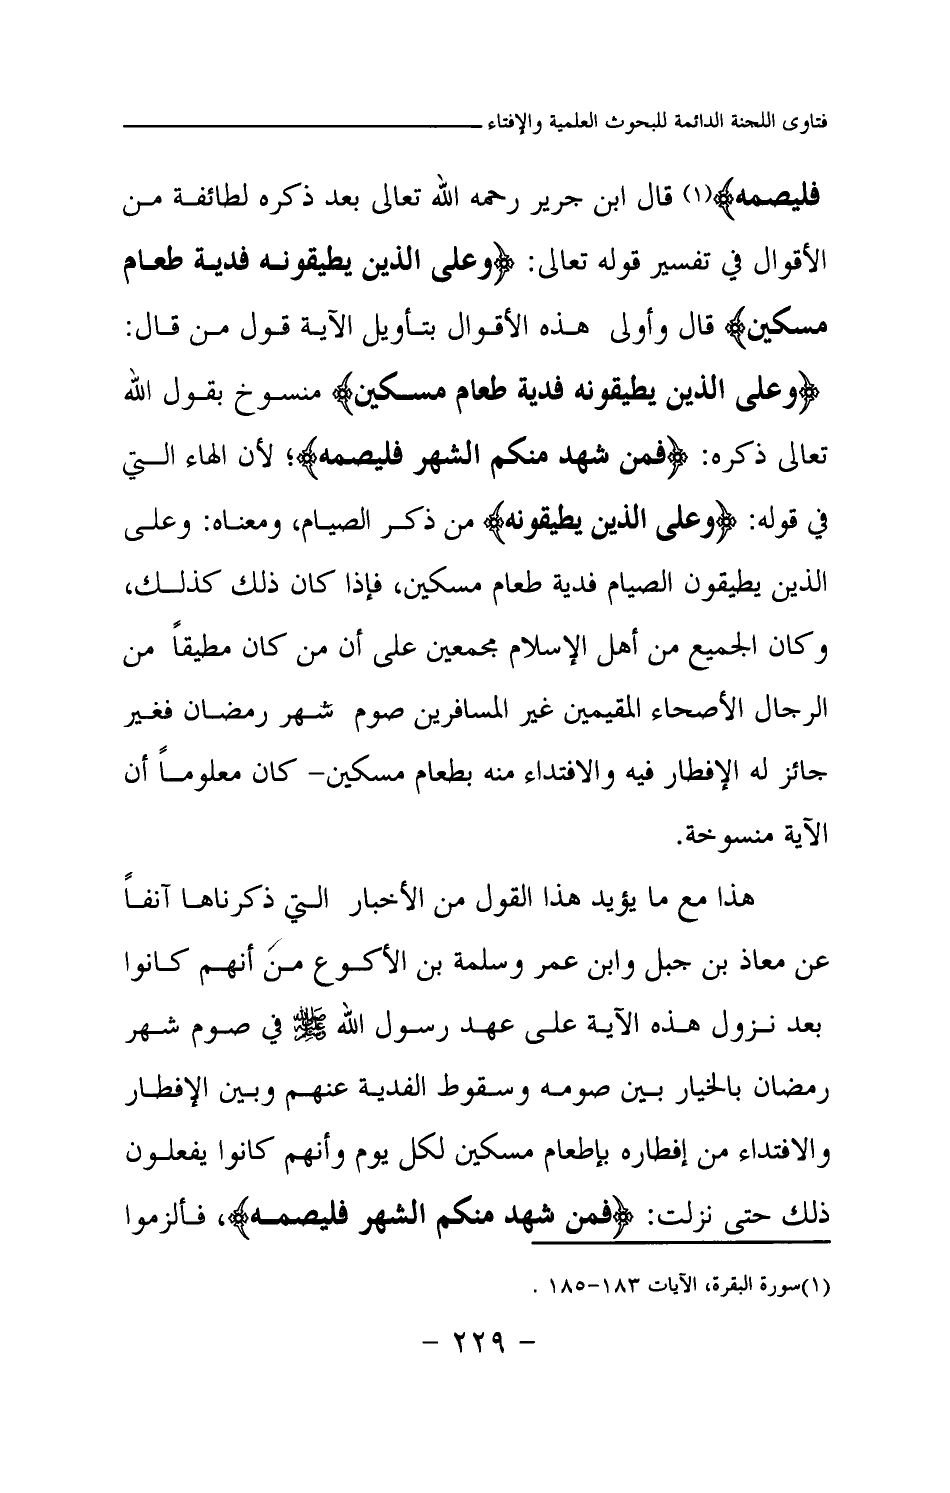 فتاوى اللجنة الدائمة للبحوث العلمية والإفتاء
فليصمه﴾(١) قال ابن جرير رحمه الله تعالى بعد ذكره لطائفة من
الأقوال في تفسير قوله تعالى: ﴿وعلى الذين يطيقونه فدية طعام
مسكين﴾ قال وأولى هذه الأقوال بتأويل الآية قول من قال:
﴿وعلى الذين يطيقونه فدية طعام مسكين﴾ منسوخ بقول الله
تعالى ذكره: ﴿فمن شهد منكم الشهر فليصمه﴾؛ لأن الهاء التي
في قوله: ﴿وعلى الذين يطيقونه﴾ من ذكر الصيام، ومعناه: وعلى
الذين يطيقون الصيام فدية طعام مسكين، فإذا كان ذلك كذلك،
وكان الجميع من أهل الإسلام مجمعين على أن من كان مطيقاً من
الرجال الأصحاء المقيمين غير المسافرين صوم شهر رمضان فغير
جائز له الإفطار فيه والافتداء منه بطعام مسكين- كان معلوماً أن
الآية منسوخة.
هذا مع ما يؤيد هذا القول من الأخبار التي ذكرناها آنفاً
عن معاذ بن جبل وابن عمر وسلمة بن الأكوع منَ أنهم كانوا
بعد نزول هذه الآية على عهد رسول الله ﷺ في صوم شهر
رمضان بالخيار بين صومه وسقوط الفدية عنهم وبين الإفطار
والافتداء من إفطاره بإطعام مسكين لكل يوم وأنهم كانوا يفعلون
ذلك حتى نزلت: ﴿فمن شهد منكم الشهر فليصمه﴾، فألزموا
(١)سورة البقرة، الآيات ١٨٣-١٨٥ .
- ٢٢٩ -